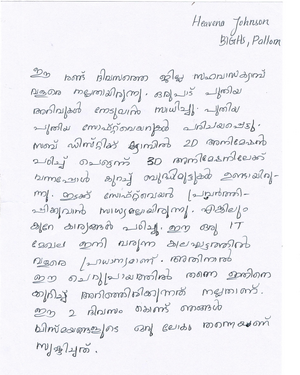 Heavena Johnson
BIGHS, Pallom
ഈ രണ്ട് ദിവസത്തെ ജില്ലാ സഹവാസക്യാമ്പ്
വളരെ നല്ലതായിരുന്നു. ഒരുപാട് പുതിയ
അറിവുകൾ നേടുവാൻ സാധിച്ചു. പുതിയ
പുതിയ സോഫ്റ്റ്‌വെയറുകൾ പരിചയപ്പെട്ടു.
സബ് ഡിസ്ട്രിക്റ്റ് ക്യാമ്പിൽ 2D അനിമേഷൻ
പഠിച്ച് പെട്ടെന്ന് 3D അനിമേഷനിലേക്ക്
വന്നപ്പോൾ കുറച്ച് ബുദ്ധിമുട്ടുകൾ ഉണ്ടായിരു-
ന്നു. ഇടക്ക് സോഫ്റ്റ്‌വെയർ പ്രവർത്തി-
പ്പിക്കുവാൻ സാധ്യമല്ലായിരുന്നു. എങ്കിലും
കുറേ കാര്യങ്ങൾ പഠിച്ചു. ഈ ഒരു IT
മേഖല ഇനി വരുന്ന കാലഘട്ടത്തിൽ
വളരെ പ്രാധാന്യമാണ്. അതിനാൽ
ഈ ചെറുപ്രായത്തിൽ തന്നെ ഇതിനെ
കുറിച്ച് അറിഞ്ഞിരിക്കുന്നത് നല്ലതാണ്.
ഈ 2 ദിവസം കൊണ്ട് ഞങ്ങൾ
വിസ്മയങ്ങളുടെ ഒരു ലോകം തന്നെയാണ്
സൃഷ്ടിച്ചത്.